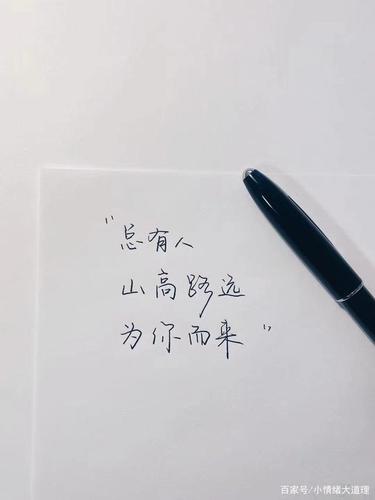 "总有人
山高路远
为你而来"
百家号/小情绪大道理